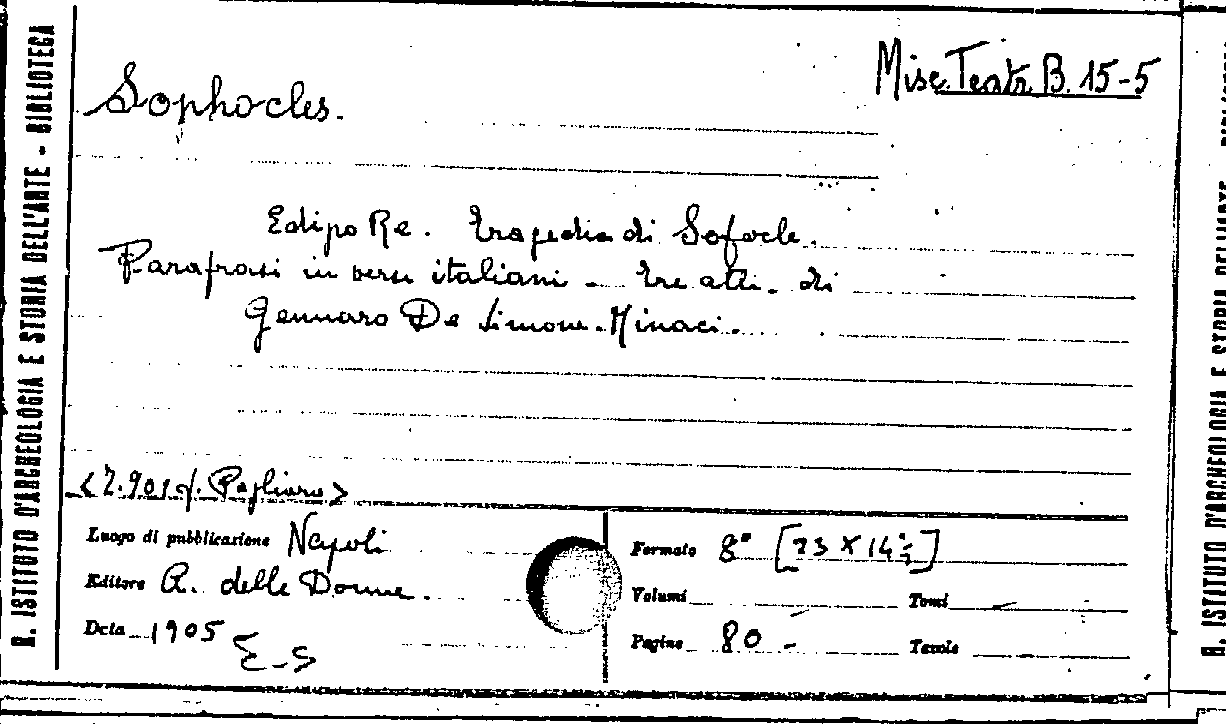 R. ISTITUTO D'ARCHEOLOGIA E STORIA DELL'ARTE - BIBLIOTECA
Misc. Teatr. B. 15-5
Sophocles.
Edipo Re. Tragedia di Sofocle.
Parafrasi in versi italiani - tre atti. di
Gennaro De Simone-Minaci.
<2.901 f. Pagliaro>
Luogo di pubblicazione Napoli
Editore A. delle Donne.
Data 1905
E-S
Formato 8° [23 X 14½]
Volumi
Tomi -
Pagine 80 -
Tavole
R. ISTITUTO D'ARCHEOLOGIA E STORIA DELL'ARTE